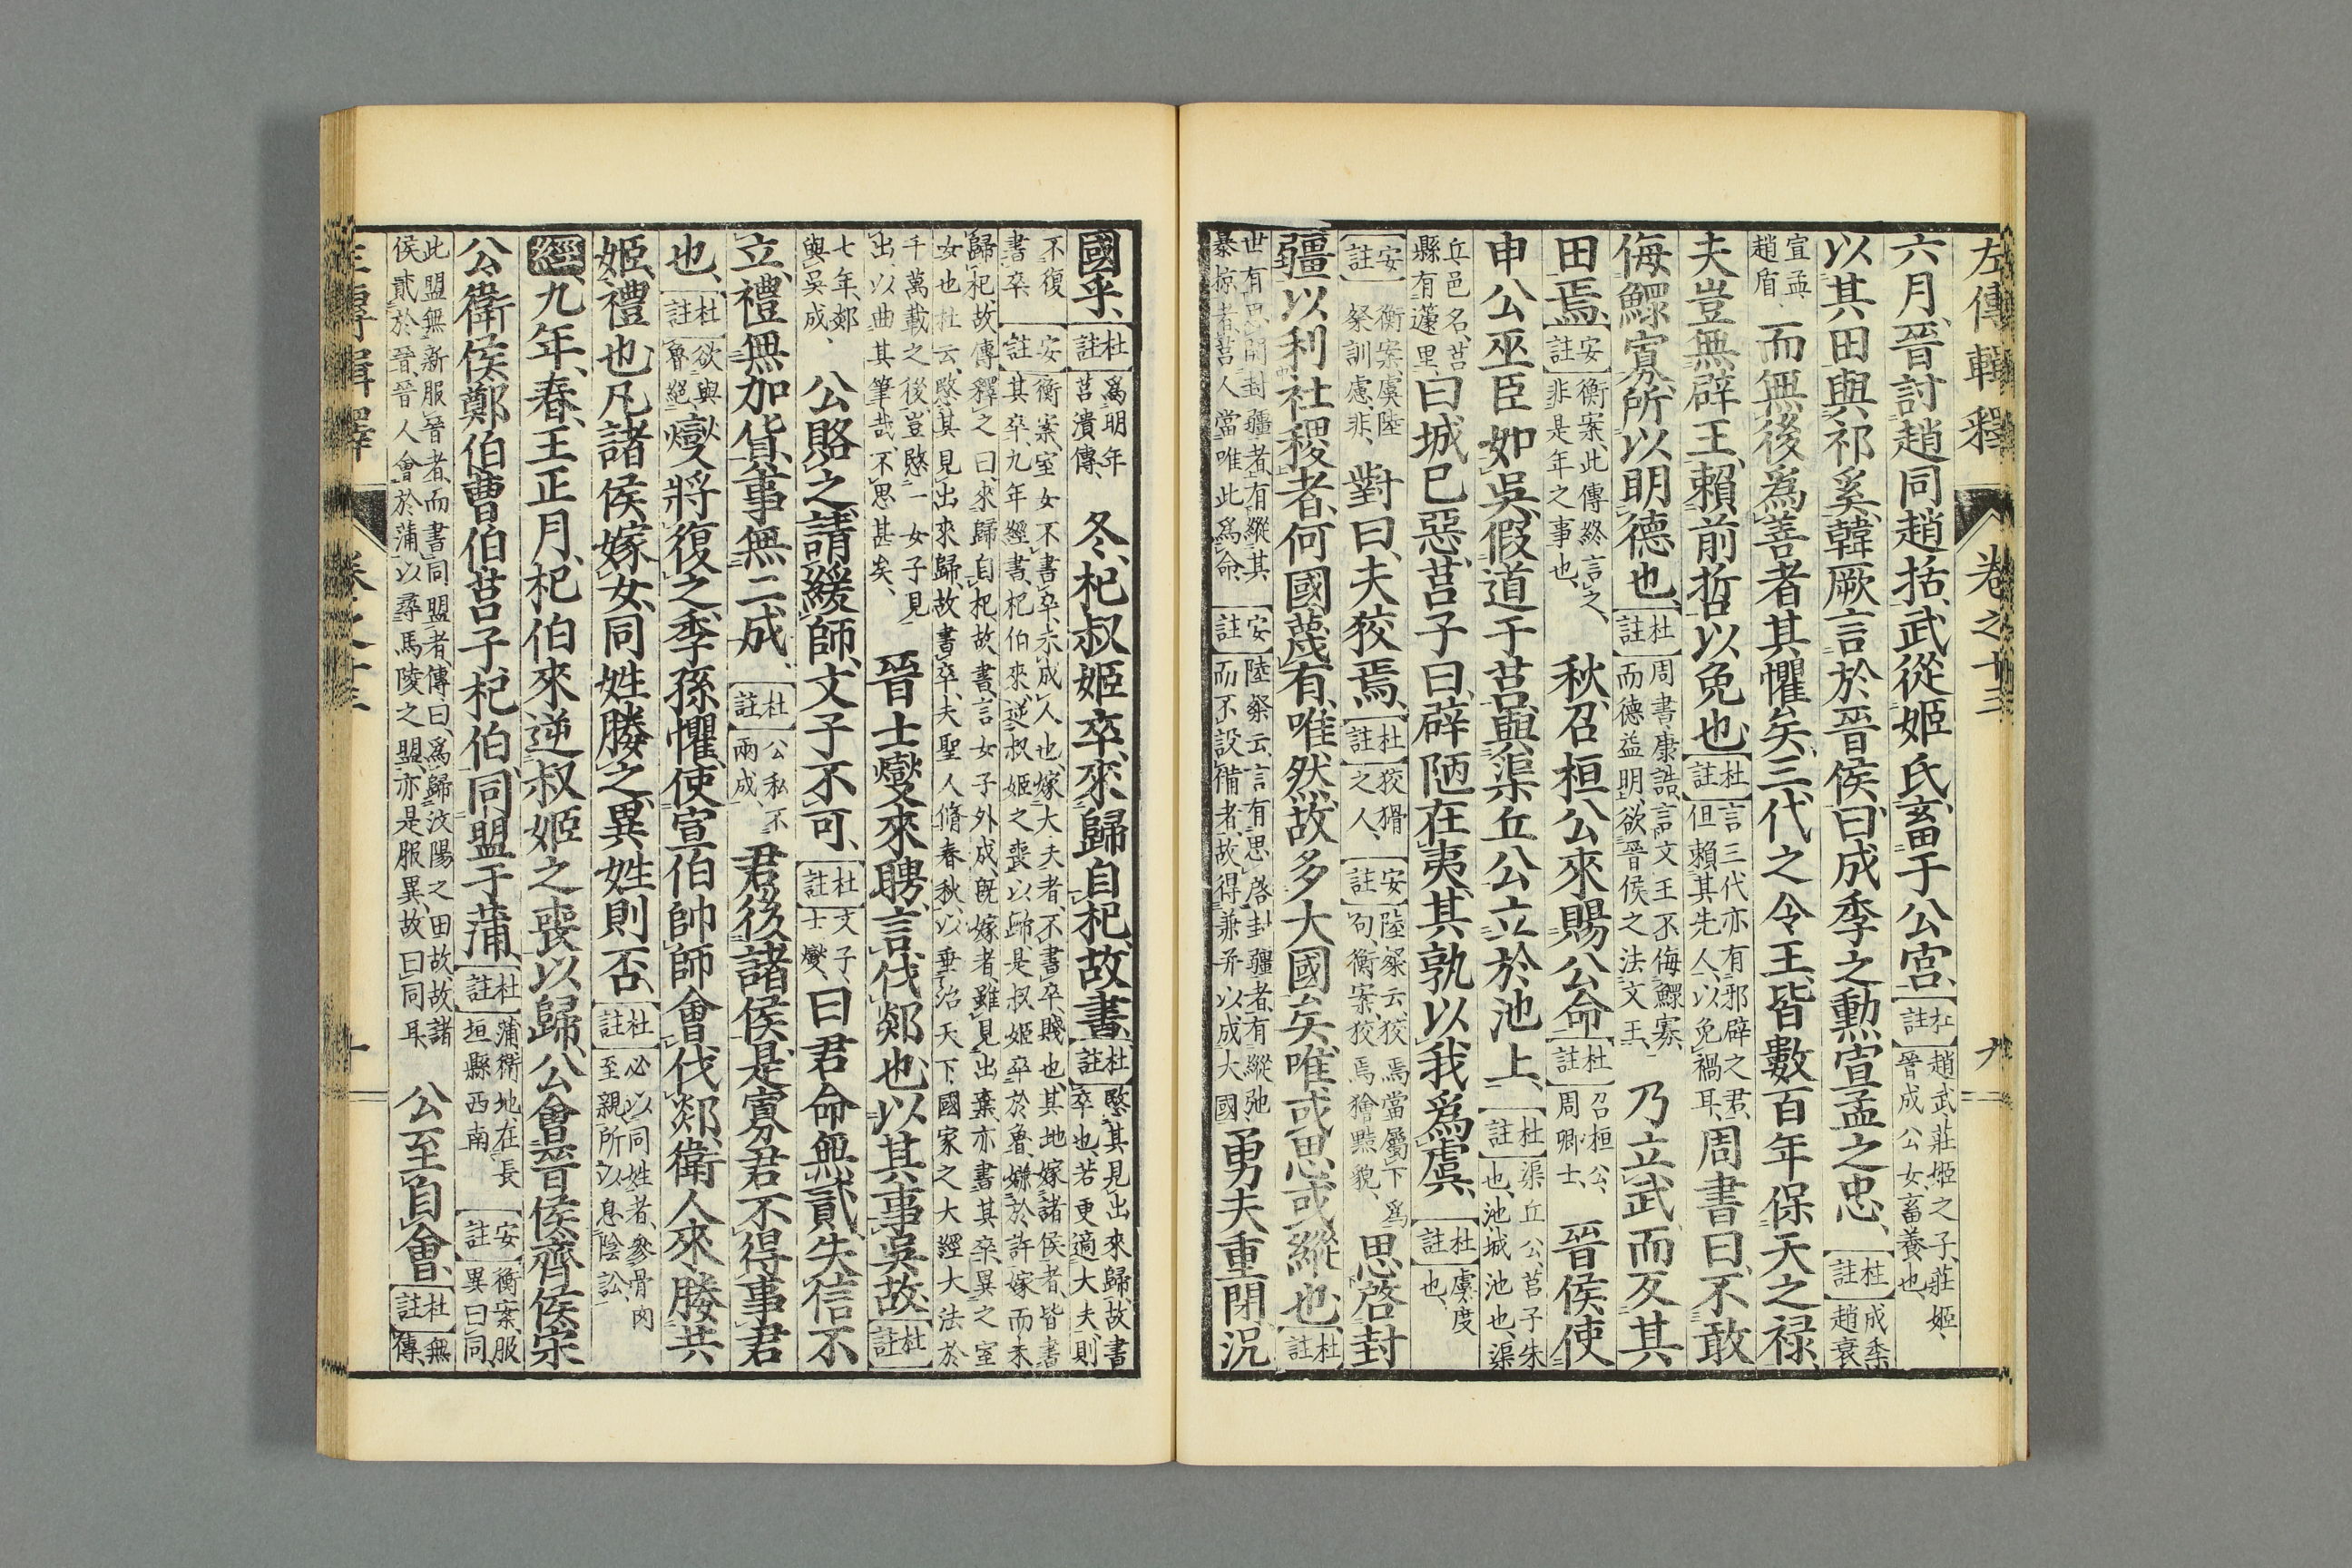 左傳輯釋 卷之十三 九
六月、晉討趙同趙括、武從姬氏畜于公宮、【杜註】趙武、莊姬之子、莊姬、晉成公女、畜養也、
以其田與祁奚、韓厥言於晉侯、曰、成季之勳、宣孟之忠、【杜註】成季、趙衰
宣孟、趙盾、而無後、爲善者其懼矣、三代之令王、皆數百年保天之祿、
夫豈無辟王、賴前哲以免也、【杜註】言三代亦有邪辟之君、但賴其先人、以免禍耳、周書曰、不敢
侮鰥寡、所以明德也、【杜註】周書、康誥、言文王不侮鰥寡、而德益明、欲晉侯之法文王、乃立武而反其
田焉、【安註】衡案、此傳終言之、非是年之事也、秋、召桓公來賜公命、【杜註】召桓公、周卿士、晉侯使
申公巫臣如吳、假道于莒、與渠丘公立於池上、【杜註】渠丘公、莒子朱也、池、城池也、渠
丘邑名、莒縣有蘧里、曰、城已惡、莒子曰、辟陋在夷、其孰以我爲虞、【杜註】虞、度也、
【安註】衡案、虞、陸粲訓慮、非、對曰、夫狡焉、【杜註】狡猾之人、【安註】陸粲云、狡焉當屬下爲句、衡案、狡焉獪黠貌、思啓封
疆以利社稷者、何國蔑有、唯然、故多大國矣、唯或思或縱也、【杜註】
世有思開封疆者、有縱其暴掠者、莒人當唯此爲命、【安註】陸粲云、言有思啓封疆者、有縱弛而不設備者、故得兼并以成大國、勇夫重閉、況
國乎、【杜註】爲明年莒潰傳、冬、杞叔姬卒、來歸自杞、故書、【杜註】愍其見出來歸、故書卒也、若更適大夫、則
不復書卒、【安註】衡案、室女不書卒、未成人也、嫁大夫者、不書卒、賤也、其地嫁諸侯者、皆書其卒、九年經書、杞伯來、逆叔姬之喪以歸、是叔姬卒於魯、嫌於許嫁而未
歸杞、故傳釋之曰、來歸自杞、故書、言女子外成、旣嫁者、雖見出棄、亦書其卒、異之室女也、杜云、愍其見出來歸、故書卒、夫聖人脩春秋、以垂治天下、國家之大經大法於
千萬載之後、豈愍一女子見出、以曲其筆哉、不思甚矣、晉士燮來聘、言伐郯也、以其事吳故、【杜註】
七年、郯與吳成、公賂之、請緩師、文子不可、【杜註】文子、士燮、曰、君命無貳、失信不
立、禮無加貨、事無二成、【杜註】公私不兩成、君後諸侯、是寡君不得事君
也、【杜註】欲與魯絕、燮將復之、季孫懼、使宣伯帥師會伐郯、衛人來媵共
姬、禮也、凡諸侯嫁女、同姓媵之、異姓則否、【杜註】必以同姓者、參骨肉至親、所以息陰訟、
經、九年、春、王正月、杞伯來逆叔姬之喪以歸、公會晉侯齊侯宋
公衛侯鄭伯曹伯莒子杞伯、同盟于蒲、【杜註】蒲、衛地、在長垣縣西南、【安註】衡案、服異曰同、
此盟無新服晉者、而書同盟者、傳曰、爲歸汶陽之田故、故諸侯貳於晉、晉人會於蒲、以尋馬陵之盟、亦是服異、故曰同耳、公至自會、【杜註】無傳、